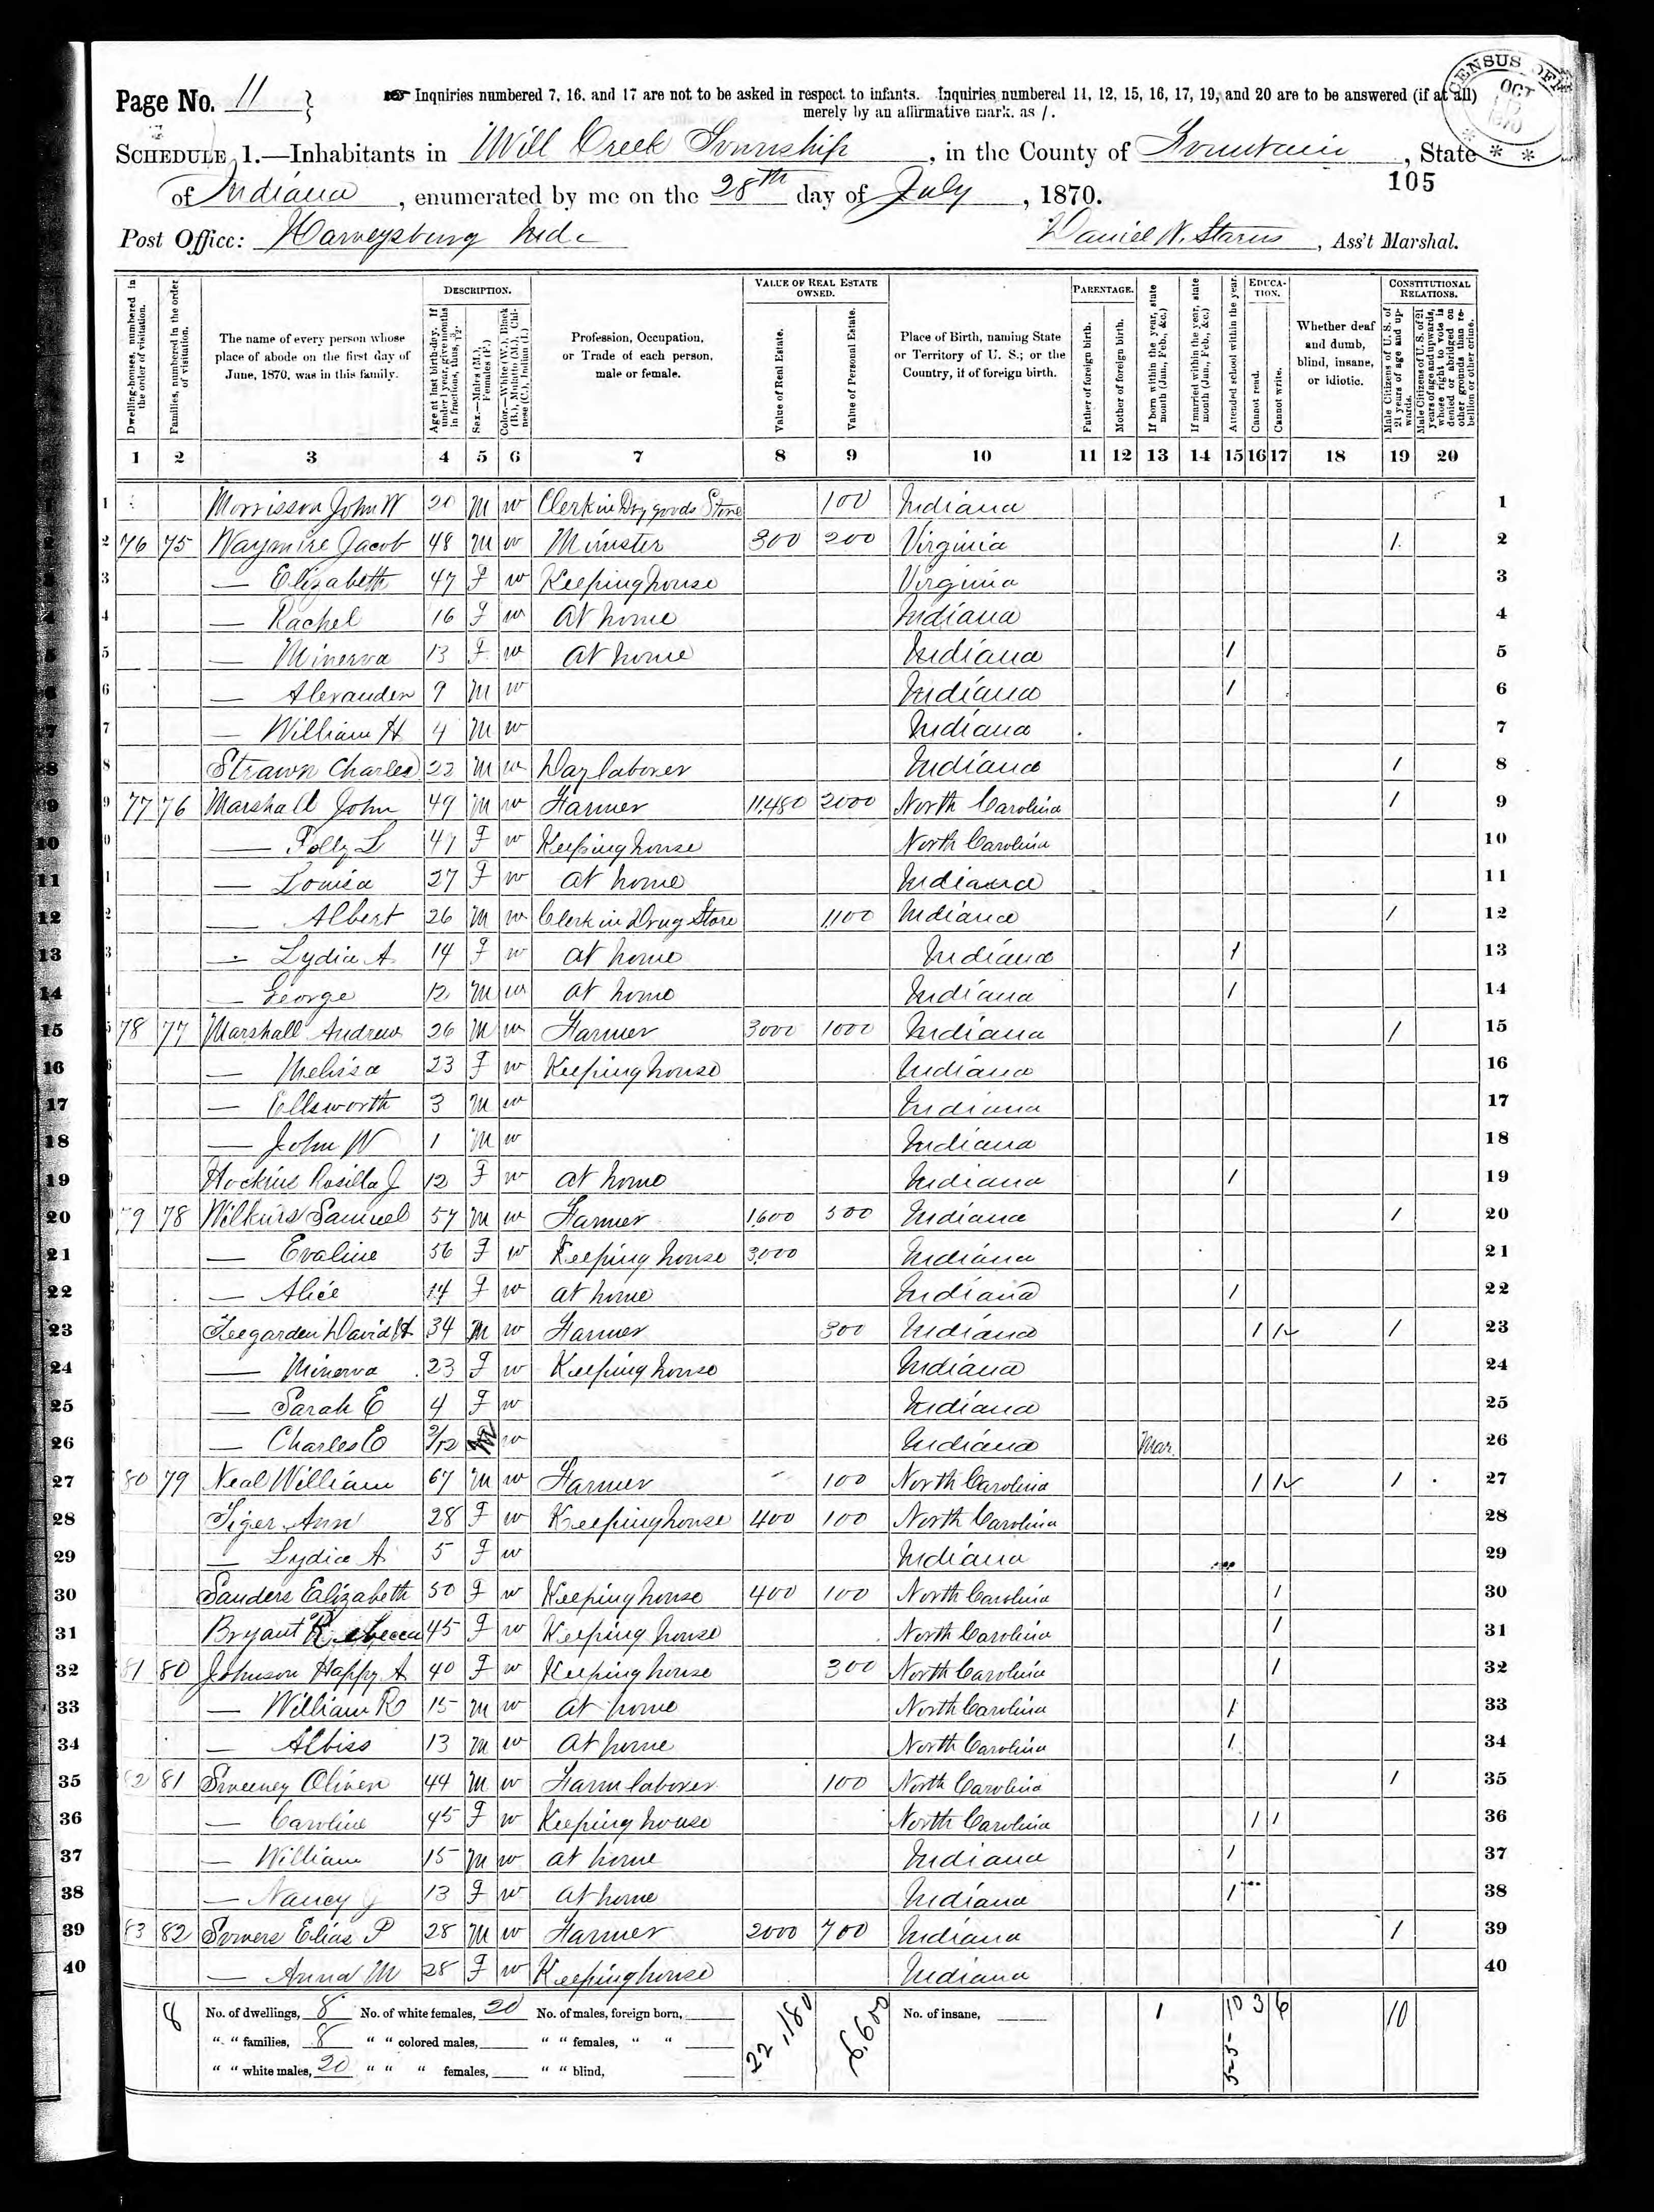 Page No. 11
Inquiries numbered 7, 16, and 17 are not to be asked in respect to infants. Inquiries numbered 11, 12, 15, 16, 17, 19, and 20 are to be answered (if at all)
merely by an affirmative mark, as /.
CENSUS OF
OCT
1870
SCHEDULE 1.—Inhabitants in Mill Creek Township, in the County of Fountain, State
of Indiana, enumerated by me on the 28th day of July, 1870.
105
Post Office: Harveysburg Ind. Daniel N. Starns, Ass't Marshal.
Dwelling-houses, numbered in the order of visitation.
Families, numbered in the order of visitation.
The name of every person whose place of abode on the first day of June, 1870, was in this family.
DESCRIPTION.
Age at last birth-day. If under 1 year, give months in fractions, thus, 3/12.
Sex.—Males (M.), Females (F.)
Color.—White (W.), Black (B.), Mulatto (M.), Chinese (C.), Indian (I.)
Profession, Occupation, or Trade of each person, male or female.
VALUE OF REAL ESTATE OWNED.
Value of Real Estate.
Value of Personal Estate.
Place of Birth, naming State or Territory of U. S.; or the Country, if of foreign birth.
PARENTAGE.
Father of foreign birth.
Mother of foreign birth.
If born within the year, state month (Jan., Feb., &c.)
If married within the year, state month (Jan., Feb., &c.)
Attended school within the year.
EDUCATION.
Cannot read.
Cannot write.
Whether deaf and dumb, blind, insane, or idiotic.
CONSTITUTIONAL RELATIONS.
Male Citizens of U. S. of 21 years of age and upwards.
Male Citizens of U. S. of 21 years of age and upwards, whose right to vote is denied or abridged on other grounds than rebellion or other crime.
1 2 3 4 5 6 7 8 9 10 11 12 13 14 15 16 17 18 19 20
1 Morrisson John W 20 M W Clerk in Dry goods Store 100 Indiana 1
2 76 75 Waymire Jacob 48 M W Minister 300 200 Virginia 1 2
3 — Elizabeth 47 F W Keeping house Virginia 3
4 — Rachel 16 F W At home Indiana 4
5 — Minerva 13 F W At home Indiana 1 5
6 — Alexander 9 M W Indiana 1 6
7 — William H 4 M W Indiana 7
8 Strawn Charles 23 M W Day laborer Indiana 1 8
9 77 76 Marshall John 49 M W Farmer 11,480 2000 North Carolina 1 9
10 — Polly L 47 F W Keeping house North Carolina 10
11 — Louisa 27 F W At home Indiana 11
12 — Albert 26 M W Clerk in Drug Store 1,100 Indiana 1 12
13 — Lydia A 14 F W At home Indiana 1 13
14 — George 12 M W At home Indiana 1 14
15 78 77 Marshall Andrew 26 M W Farmer 3000 1000 Indiana 1 15
16 — Melissa 23 F W Keeping house Indiana 16
17 — Ellsworth 3 M W Indiana 17
18 — John W 1 M W Indiana 18
19 Rosilla J 12 F W At home Indiana 1 19
20 79 78 Wilkins Samuel 57 M W Farmer 1,600 Indiana 1 20
21 — Evaline 56 F W Keeping house 3,000 Indiana 21
22 — Alice 14 F W At home Indiana 1 22
23 Teegarden David H 34 M W Farmer 300 Indiana 1 1 1 23
24 — Minerva 23 F W Keeping house Indiana 24
25 — Sarah E 4 F W Indiana 25
26 — Charles E 3/12 M W Indiana Mar. 26
27 80 79 Neal William 67 M W Farmer 100 North Carolina 1 1 1 27
28 Tiger Ann 28 F W Keeping house 400 100 North Carolina 28
29 — Lydia A 5 F W Indiana 29
30 Sanders Elizabeth 50 F W Keeping house 400 100 North Carolina 1 30
31 Bryant Rebecca 45 F W Keeping house North Carolina 1 31
32 81 80 Johnson Happy A 40 F W Keeping house 300 North Carolina 1 32
33 — William R 15 M W At home North Carolina 1 33
34 — Albiss 13 M W At home North Carolina 1 34
35 82 81 Sweeney Oliver 44 M W Farm laborer 100 North Carolina 1 35
36 — Caroline 45 F W Keeping house North Carolina 1 1 36
37 — William 15 M W At home Indiana 1 37
38 — Nancy J 13 F W At home Indiana 1 38
39 83 82 Elias P 28 M W Farmer 2000 700 Indiana 1 39
40 — Anna M 28 F W Keeping house Indiana 40
8 No. of dwellings, 8 No. of white females, 20 No. of males, foreign born, 22,180 6,600 No. of insane, 1 10 3 6 10
" " families, 8 " " colored males, " " females, " "
" " white males, 20 " " " females, " " blind,